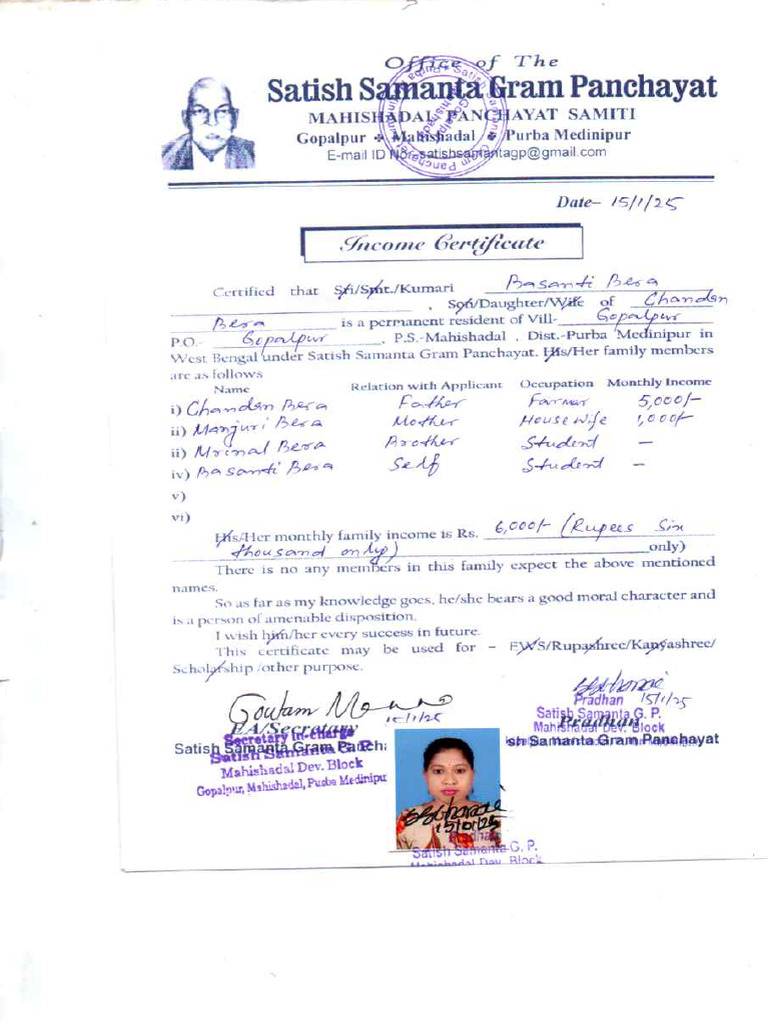 Office of The
Satish Samanta Gram Panchayat
MAHISHADAL PANCHAYAT SAMITI
Gopalpur ❖ Mahishadal ❖ Purba Medinipur
E-mail ID No. satishsamantagp@gmail.com
Date– 15/1/25
Income Certificate
Certified that Sri/Smt./Kumari Basanti Bera
, Son/Daughter/Wife of Chandan
Bera is a permanent resident of Vill- Gopalpur
P.O.- Gopalpur, P.S.-Mahishadal , Dist.-Purba Medinipur in
West Bengal under Satish Samanta Gram Panchayat. His/Her family members
are as follows
Name Relation with Applicant Occupation Monthly Income
i) Chandan Bera Father Farmar 5,000/-
ii) Manjuri Bera Mother House wife 1,000/-
ii) Mrinal Bera Brother Student –
iv) Basanti Bera Self Student –
v)
vi)
His/Her monthly family income is Rs. 6,000/- (Rupees Six
thousand only) only)
There is no any members in this family expect the above mentioned
names.
So as far as my knowledge goes, he/she bears a good moral character and
is a person of amenable disposition.
I wish him/her every success in future.
This certificate may be used for – EWS/Rupashree/Kanyashree/
Scholarship /other purpose.
Goutam
15/1/25
EA/Secretary
Secretary In-charge
Satish Samanta Gram Pancha
Satish Samanta G. P.
Mahishadal Dev. Block
Gopalpur, Mahishadal, Purba Medinipur
15/1/25
Pradhan
Satish Samanta G. P.
Mahishadal Dev. Block
Pradhan
ish Samanta Gram Panchayat
15/01/25
Pradhan
Satish Samanta G. P.
Mahishadal Dev. Block